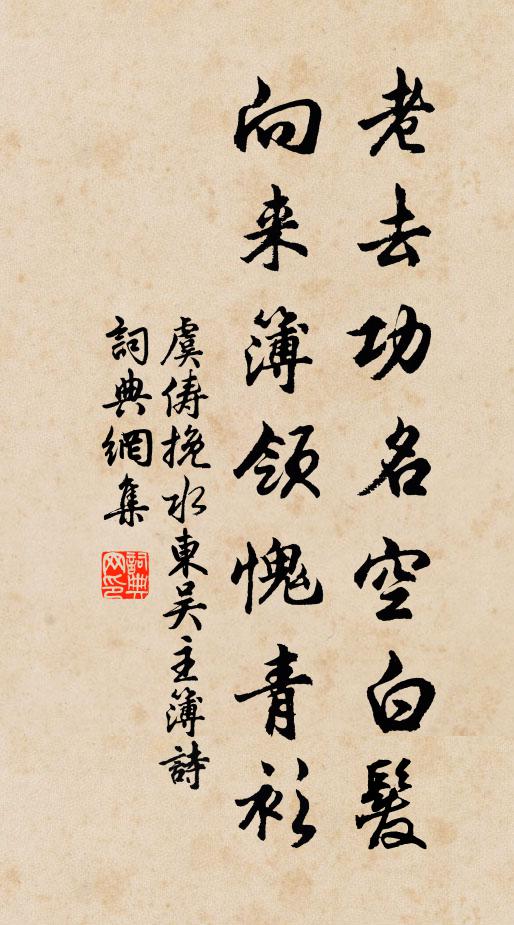 老去功名空白髮
向来簿領愧青衫
虞俦挽水東吴主簿詩
詞典網集
詞典网印